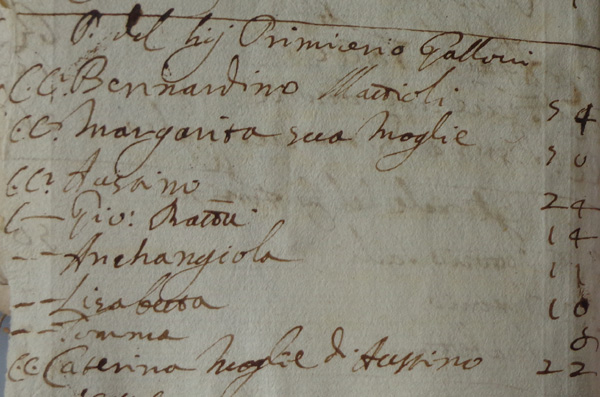 P. del Sig Primicerio Galloni
C.Cr. Bernardino Mattioli 54
C.Cr. Margarita sua Moglie 50
C.Cr. Aussino 24
C— Gio: Batta 14
-- Archangiola 11
-- Lisabetta 10
-- Tomma 8
C.C. Caterina Moglie di Aussino 22